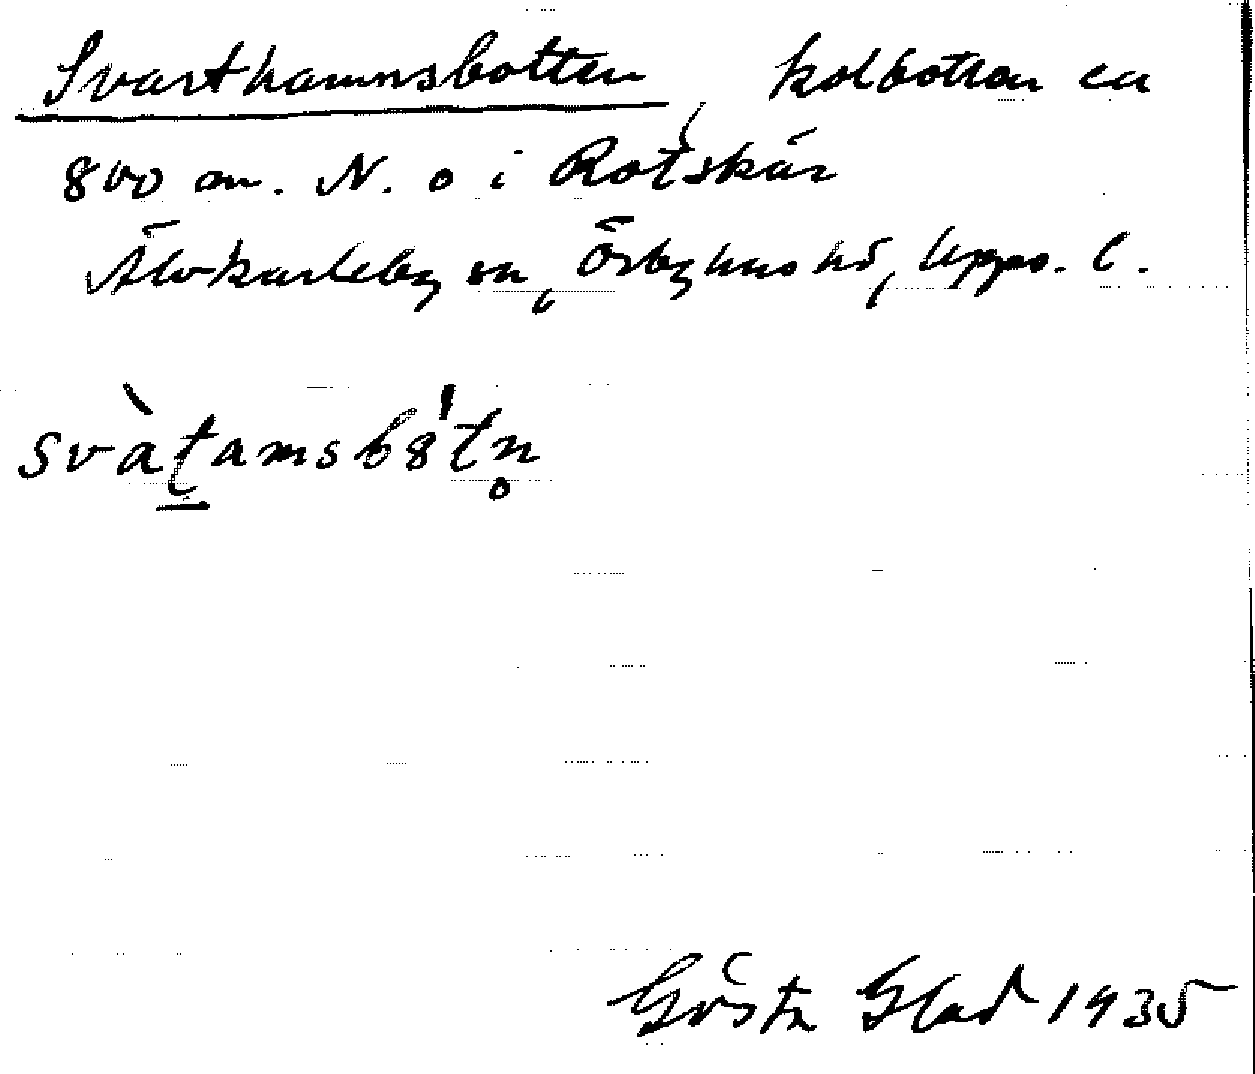 Svarthamnsbotten, kolbotten ca
800 m. N. o i Rotskär
Älvkarleby sn, Örbyhus hd, Upps. l.
svàt̠amsbȣ́tn̥
Gösta Glad 1935